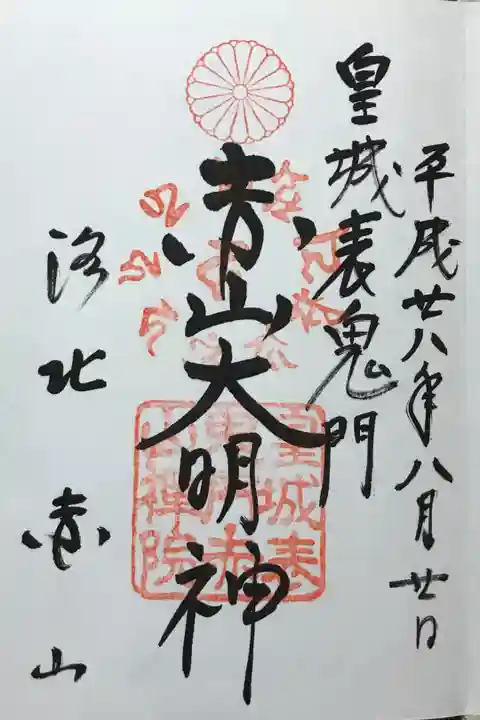 平成廿八年八月廿日
皇城表鬼門
赤山大明神
洛北赤山
皇城表
鬼門赤
山禅院